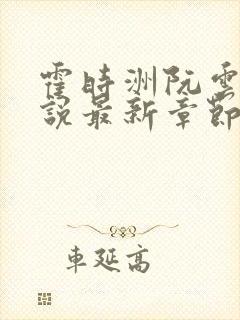 霍時洲阮雲
說最新章節
車延高